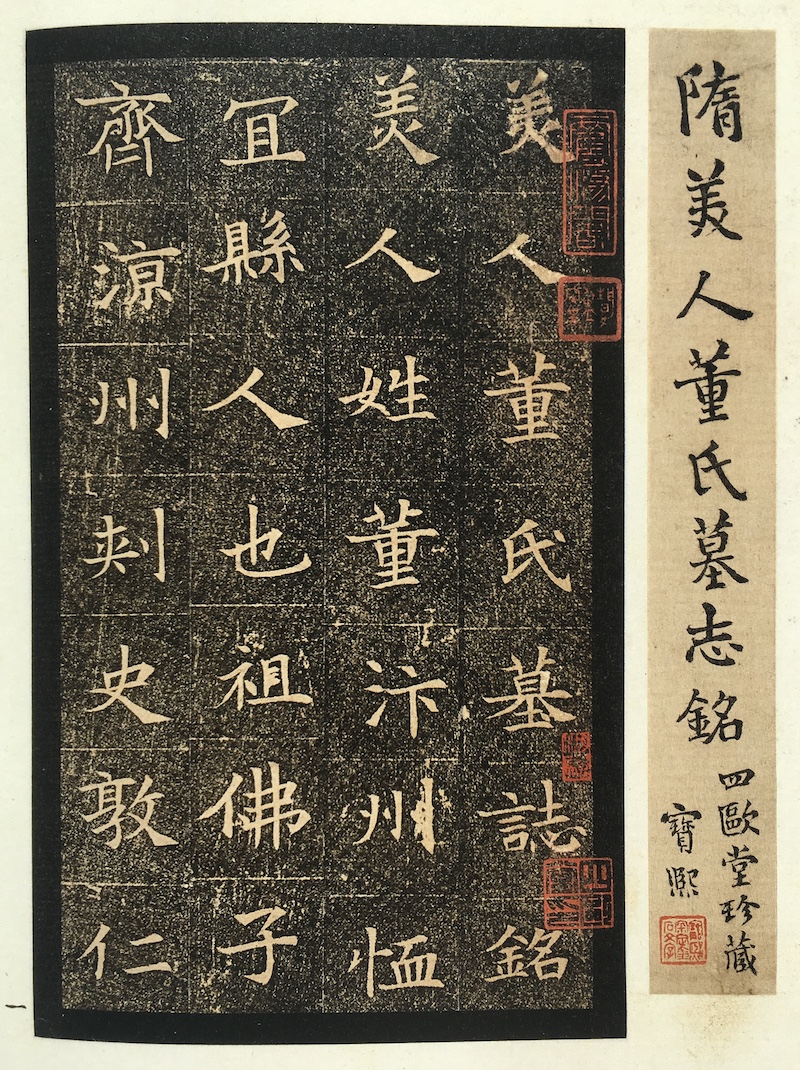 隋美人董氏墓志銘
四歐堂珍藏
寶熙
美人董氏墓誌銘
美人姓董汴州恤
冝縣人也祖佛子
齊涼州刾史敦仁
一